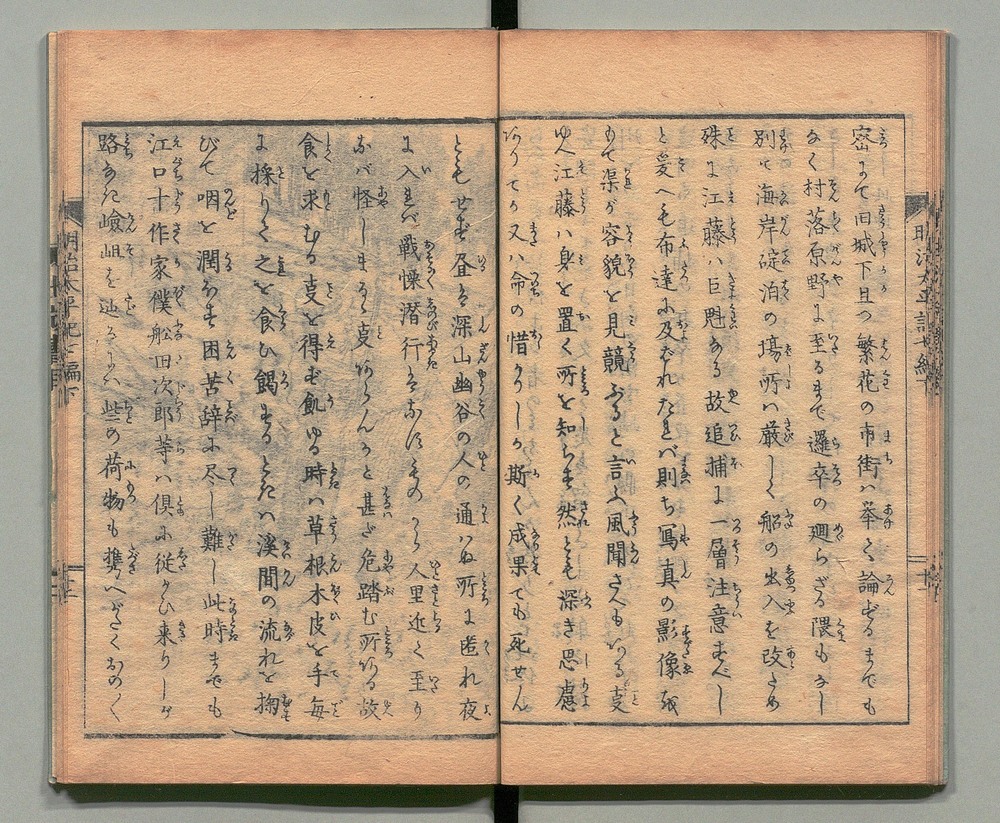 密にて旧城下且つ繁花の市街ハ挙て論ずるまでも
なく村落原野に至るまで邏卒の廻らざる隈もなし
別て海岸碇泊の場所ハ厳しく船の出入を改ため
殊に江藤ハ巨魁なる故追捕に一層注意すべし
と爰へも布達に及ばれたれバ則ち写真の影像或
もて渠が容貌を見競ぶると言ふ風聞さへもある事
ゆへ江藤ハ身を置く所を知らず然とも深き思慮
ありてか又ハ命の惜かりしか斯く成果ても死せん
ともせず昼は深山幽谷の人の通ハぬ所に匿れ夜
に入れバ戦慄潜行はなすものから人里近く至り
なバ怪しまるゝ事あらんかと甚だ危踏む所ある故
食を求むる事を得ず飢ゆる時ハ草根木皮を手毎
に採りて之を食ひ餲するときハ溪間の流れを掬
びて咽を潤ほす困苦辞に尽し難し此時までも
江口十作家僕船田次郎等ハ倶に従がひ来りしが
路なき嶮岨を辿るにハ些の荷物も携へがたくおのく
明治太平記七編下